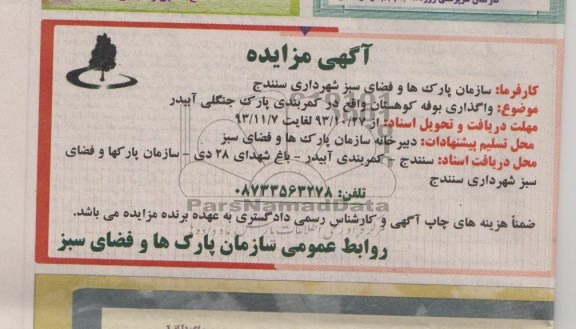 آگهی مزایده
کارفرما: سازمان پارک ها و فضای سبز شهرداری سنندج
موضوع: واگذاری بوفه کوهستان واقع در کمربندی پارک جنگلی آبیدر
مهلت دریافت و تحویل اسناد: از ۹۳/۱۰/۲۷ لغایت ۹۳/۱۱/۷
محل تسلیم پیشنهادات: دبیرخانه سازمان پارک ها و فضای سبز
محل دریافت اسناد: سنندج - کمربندی آبیدر - باغ شهدای ۲۸ دی - سازمان پارکها و فضای
سبز شهرداری سنندج
تلفن: ۰۸۷۳۳۵۶۳۲۷۸
ParsNamadData
ضمناً هزینه های چاپ آگهی و کارشناس رسمی دادگستری به عهده برنده مزایده می باشد.
روابط عمومی سازمان پارک ها و فضای سبز